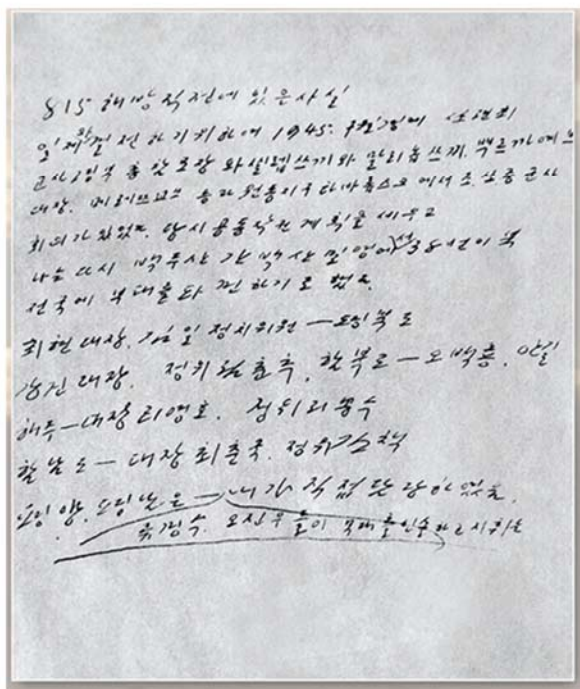 815 해방직전에 있은 사실
일제와 결전하기 위하여 1945. 에
군사 총참모장 와실렙쓰끼와 말리놉쓰끼, 뿌르까예브
대장, 메레쯔꼬브 등과 원동지구 하바롭스크에서 조, 쏘, 중 군사
회의가 있었다. 당시 공동작전 계획을 세우고
나는 다시 백두산 간백산 밀영에서 38선이북
전국에 부대를 파견하기로 했다.
최현 대장, 김일 정치위원 — 평북도
강건 대장. 정위 림춘추, 함북도 — 오백룡, 안길
해주 — 대장 리영호, 정위 리봉수
함남도 — 대장 최춘국, 정위 김책
평양, 평남은 — 내가 직접 담당하였음.
류경수, 오진우들이 부대를 인솔하고